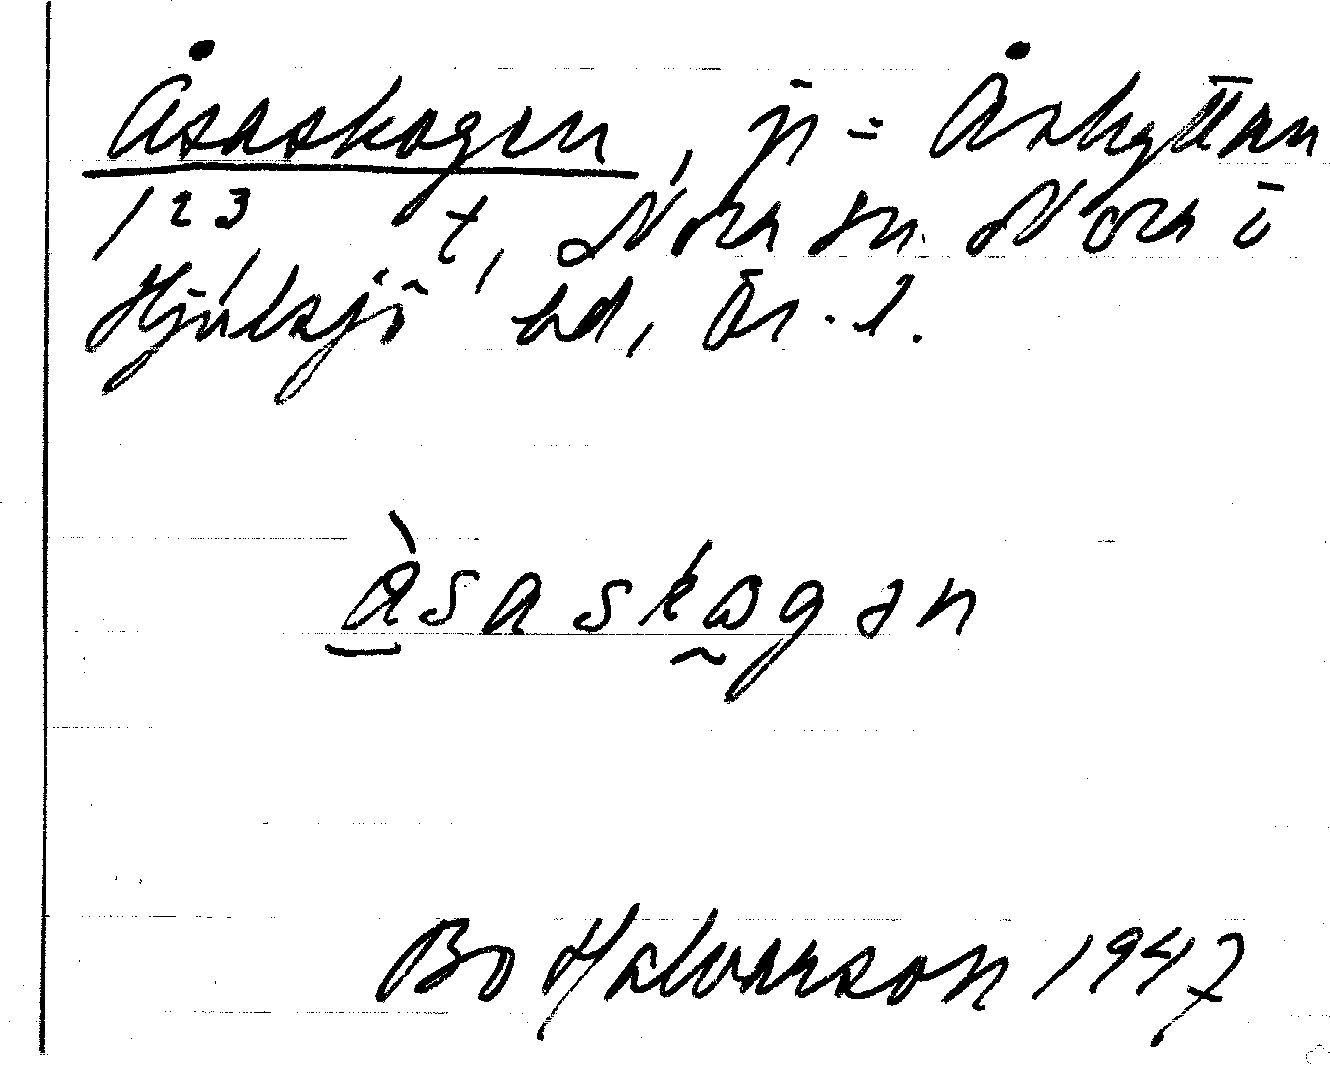 Åsaskogen, jr = Åshyttan
1²3 t, Nora sn. Nora o
Hjulsjö hd, Ör. l.
åsaskogən
Bo Halvarson 1947